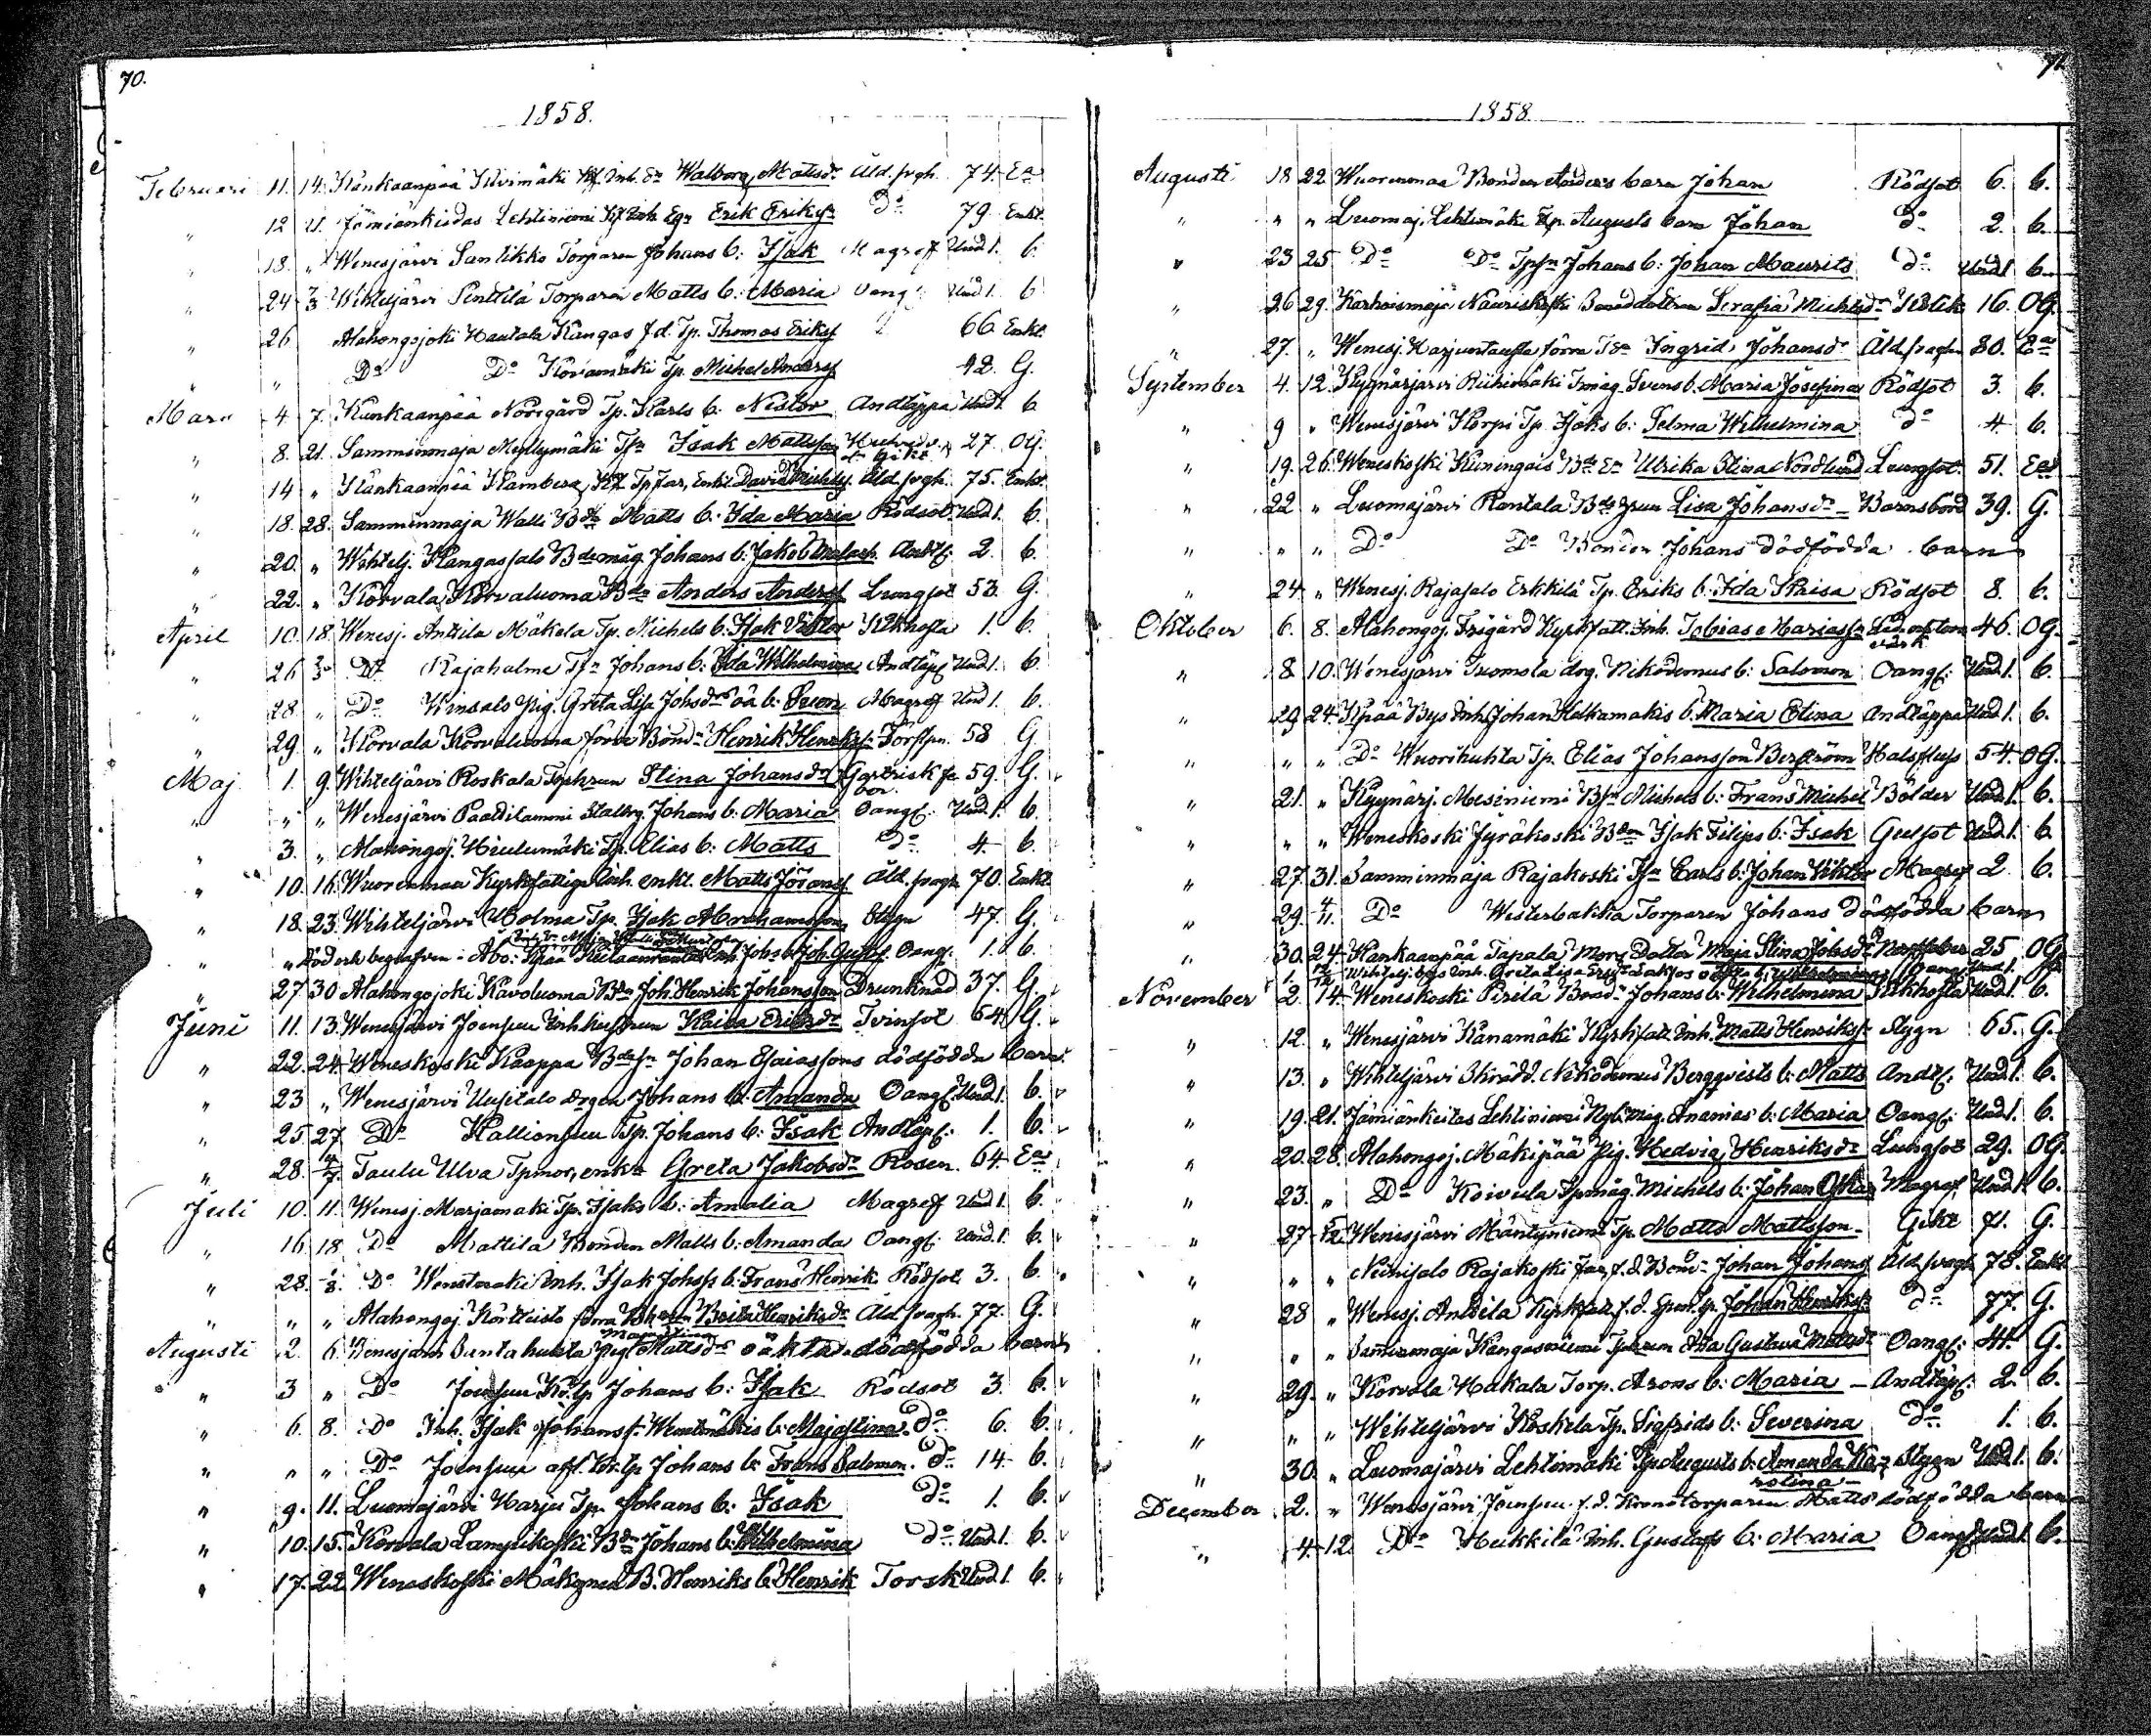 70.
1858.
Februari 11. 14. Kankaanpää Kivimäki Inh. Ea Walborg Mattsdr Åld.svgh. 74. Ea
" 12 21. Jämiänkeidas Lehtiniemi Inh. Erik Eriksn Do 79 Enkl.
" 18. " Wenesjärvi Santikko Torparen Johans b: Isak Magref Und 1. b.
" 24 7/3 Wihteljärvi Penttilä Torparen Matts b: Maria Oangf. Und 1. b
" 26 Alahongojoki Hautala Kangas f.d. Tp. Thomas Eriksf 66 Enkl.
" " Do Do Koivumäki Tp. Michel Andersf 42. G.
Mars 4 7. Kankaanpää Norrgård Tp. Karls b: Nestor Andtäppa Und 1. b
" 8. 21. Samminmaja Myllymäki Tpsn Isak Mattsson 27. OG.
" 14 " Kankaanpää Tpfar, Enkl. David Michelsf. Åld.svgh. 75. Enkl.
" 18. 28. Samminmaja Walli Bdn Matts b. Ida Maria Rödsot Und 1. b.
" 20. " Wihtelj. Kangassalo Bdemåg Johans b: Jakob Andtf. 2. b.
" 22. " Korvala Korvaluoma Bdn Anders Andersf Lungsot 53. G.
April 10. 18. Wenesj. Anttila Mäkela Tp. Michels b: Isak Viktor Kikhosta 1. b.
" 26 Do Rajahalme Tpsn Johans b: Ida Wilhelmina Andtäpf Und 1. b
" 28 " Do Winsalo Pig. Greta Lisa Johsdrs oä b: Sven Magref Und 1. b.
" 29. " Korvala Korvaluoma förre Bond. Henrik Henriksn 58 G.
Maj 1. 9. Wihteljärvi Koskala Tphrun Stina Johansdr Gastrisk feber 59. G.
" " " Wenesjärvi Paattilammi Johans b: Maria Oangf. Und 1. b.
" 3. " Alahongoj. Hiulumäki Tp. Elias b: Matts Do 4 b.
" 10. 16. Wuorenmaa Kyrkfattige Inh. enkl. Matts Göransf Åld.svagh. 70. Enkl
" 18. 23. Wihteljärvi Holma Tp. Isak Abrahamsson Stygn 47. G.
" " Död och begrafven i Åbo: Joh. Gustaf. Oangf. 1. b.
" 27 30 Alahongojoki Kavoluoma Bdn Joh. Henrik Johansson Drunknad 37. G.
Juni 11. 13. Wenesjärvi Joensuu Inh. hustrun Kaisa Eriksdr Tvinsot 64. G.
" 22. 24. Weneskoski Kaappa Bdesn Johan Esaiassons dödfödda barn
" 23 " Wenesjärvi Uusitalo drgn Johans b. Amanda Oangf. Und 1. b.
" 25. 27 Do Kallionsuu Tp. Johans b: Isak Andtäpf. 1. b.
" 28. 4/7. Taulu Ulva Tpmor, enka Greta Jakobsdr Rosen. 64. Ea
Juli 10. 11. Wenesj. Marjamaki Tp. Isaks b: Amalia Magref Und 1. b.
" 16 18 Do Mattila Bonden Matts b: Amanda Oangf. Und 1. b.
" 28. Do Inh. Isak Johss b: Frans Henrik Rödsot 3. b.
" " " Alahongoj. förra Brita Henriksdr Åld.svagh. 77. G.
Augusti 2. 6. Wenesjärvi Santahuhta Pig. Maja Stina Mattsdrs oäkta dödfödda barn
" 3 " Do Joensuu Johans b: Isak Rödsot 3. b.
" 6. 8. Do Inh. Isak Johansf. b: Maja Stina. Do 6. b.
" " " Do Joensuu Johans b: Frans Salomon. Do 14. b.
" 9. 11. Luomajärvi Harju Tp. Johans b: Isak Do 1. b.
" 10. 15. Korvala Lampikoski Bdn Johans b: Wilhelmina Do Und. 1. b.
" 17. 22. Weneskoski Mäkynen B. Henriks b: Henrik Torsk Und. 1. b.
71.
1858.
Augusti 18 22 Wuorenmaa Bonden Anders barn Johan Rödsot 6. b.
" " " Luomaj. Lehtimäki Tp. Augusts barn Johan Do 2. b.
" 23 25 Do Do Tpsn Johans b: Johan Maurits Do Und 1 b.
" 26 29. Karhoismaja Naariskoski Bonddottren Serafia Michelsdr Kolik 16. OG.
" 27. " Wenesj. Harjuntausta förra Ingrid Johansdr Åld.svaghn 80. Ea
September 4. 12. Kyynärjärvi Riihimäki Tmåg. Svens b. Maria Josefina Rödsot 3. b.
" 9 " Wenesjärvi Korpi Tp. Isaks b: Selma Wilhelmina Do 4. b.
" 19. 26. Weneskoski Kuningais Bde Ea Ulrika Stina Nordlund Lungsot. 51. Ea
" 22 " Luomajärvi Rantala Bde hrun Lisa Johansdr Barnsbörd 39. G.
" " " Do Do Bonden Johans dödfödda barn
" 24 " Wenesj. Rajasalo Erkkilä Tp. Eriks b: Ida Kaisa Rödsot 8. b.
Oktober 6. 8. Alahongoj. Frigård Kyrkfatt. Inh. Tobias Mariasson 46. OG.
" 8 10. Wenesjärvi Tuomola drg. Nikodemus b: Salomon Oangf. Und. 1. b.
" 29 24. Ilpää Bys Inh. Johan Halkamakis b. Maria Stina Andtäppa Und 1. b.
" " " Do Wuorihuhta Tp. Elias Johansson Bergström Halsfluss 54. OG.
" 21. " Kyynärj. Meseniemi Bsn Michels b: Frans Michel Bölder Und. 1. b.
" " " Weneskoski Jyräkoski Bdn Isak Filips b: Isak Gulsot Und 1. b
" 27. 31. Samminmaja Rajakoski Tsn Carls b: Johan Viktor Magref 2 b.
" 29. 4/11. Do Westerbakka Torparen Johans dödfödda barn
" 30. 24. Kankaanpää Tapala Mor. Dotter Maja Stina Johsdr 25 OG
1. Wihtelj. bys Inh. Greta Lisa oäkta b: Wilhelmina Oangf. Und. 1.
November 2. 14. Weneskoski Pirilä Bond. Johans b: Wilhelmina Kikhosta Und 1. b.
" 12. " Wenesjärvi Kanamäki Kyrkfatt. Inh. Matts Henriksn Stygn 65. G.
" 13. " Wihteljärvi Skrädd. Nikodemus Bergqvists b: Matts Andtf. Und. 1. b.
" 19. 21. Jämiänkeitas Lehtiniemi Nyb. måg. Ananias b: Maria Oangf. Und. 1. b.
" 20. 28. Alahongoj. Mäkipää Pig. Hedvig Henriksdr Lungsot 29. OG.
" 23. " Do Koivula Tpmåg. Michels b: Johan Oskar Magref. Und 1. b.
" 27 5/12 Wenesjärvi Mäntyniemi Tp. Matts Mattsson Gikt 71. G.
" " " Neinisalo Rajakoski far, f.d. Bond. Johan Johansf Åld.svagh. 78. Enkl
" 28 " Wenesj. Anttila Kyrkfatt. f.d. Johan Henriksn Do 77. G.
" " " Samminmaja Kangasniemi Tphrun Ida Gustava Mattsdr Oangf. 44. G.
" 29. " Korvala Hakala Torp. Arons b: Maria Andtäpf. 2. b.
" " " Wihteljärvi Koskela Tp. Sigfrids b: Severina Do 1. b.
" 30. " Luomajärvi Lehtimäki Tp. Augusts b: Amanda Karolina Stygn Und 1. b.
December 2. " Wenesjärvi Joensuu f.d. Kronotorparen Matts dödfödda barn
" 4. 12. Do Heikkilä Inh. Gustafs b: Maria Oangf. Und 1. b.